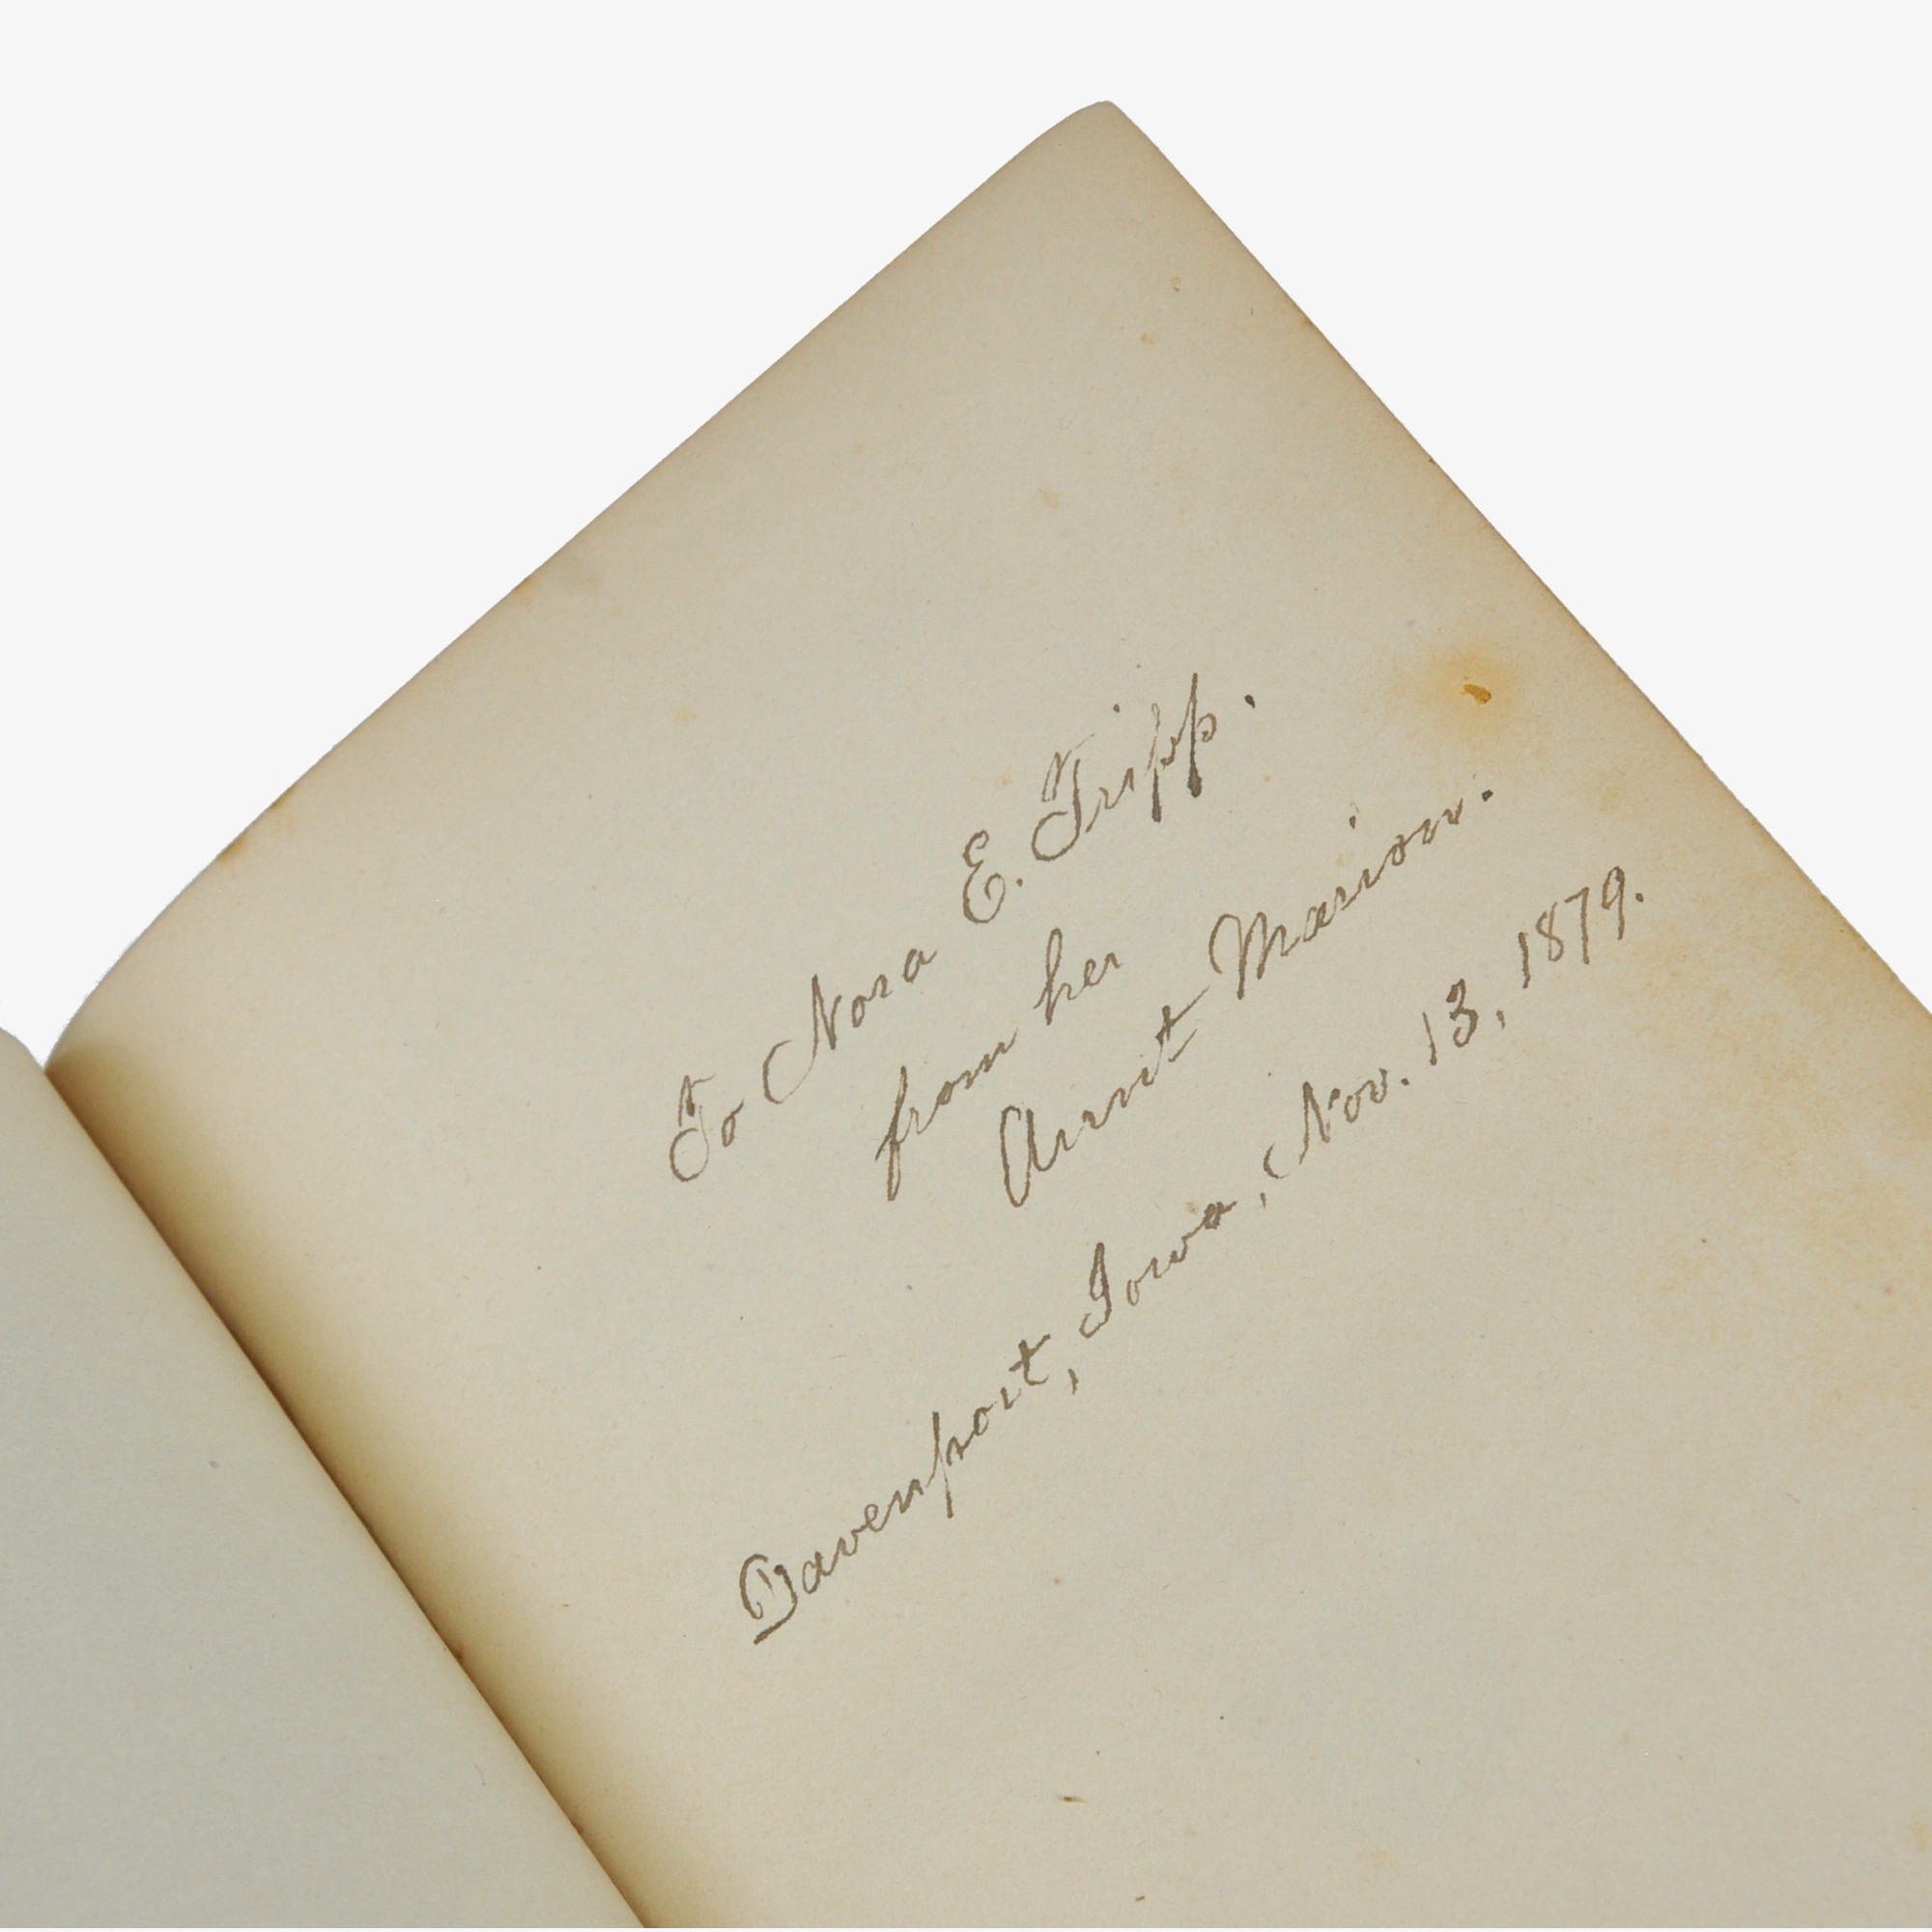 To Nora E. Tripp.
from her
Aunt Marion.
Davenport, Iowa, Nov. 13, 1879.